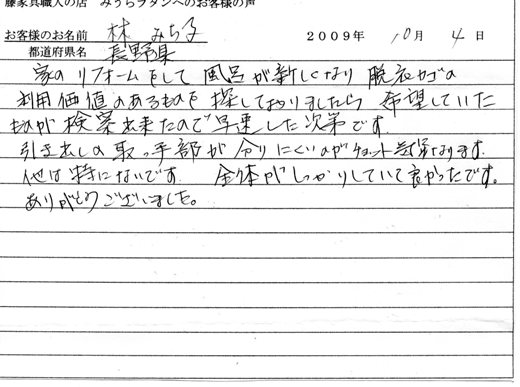 籐家具職人の店 みうらラタンへのお客様の声
お客様のお名前 林 みち子 2009年 10月 4日
都道府県名 長野県
家のリフォームをして 風呂が新しくなり 脱衣カゴの
利用価値のあるものを 探しておりましたら 希望していた
ものが 検索出来たので早速した次第です
引き出しの 取っ手部が 分りにくいのがチョット 気になります.
他は特にないです 全体がしっかりしていて良かったです。
ありがとうございました。